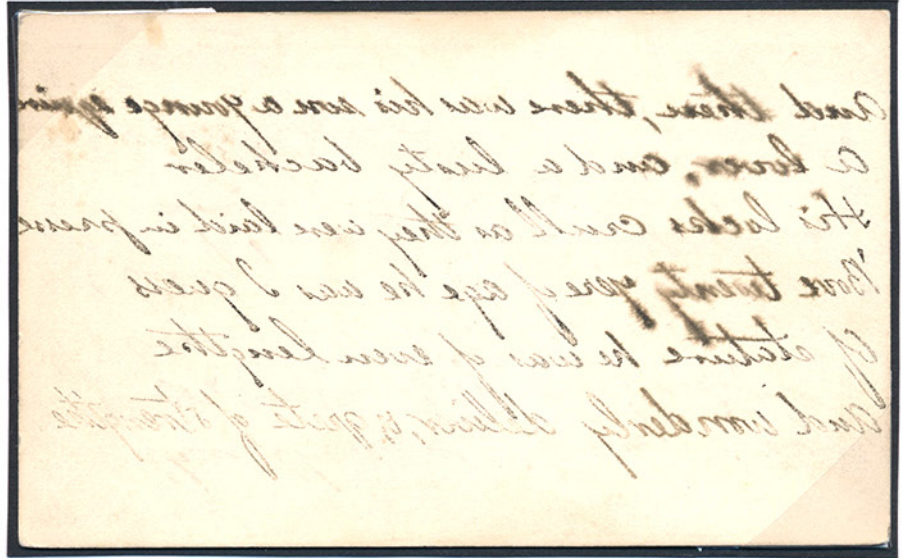 And there, there was his son a younge squire
a lover, and a lusty bachelor
His locks crull as they were laid in presse
Bove twenty yere of age he was I guess
Of stature he was of even lengthe
And wonderly and of strengthe